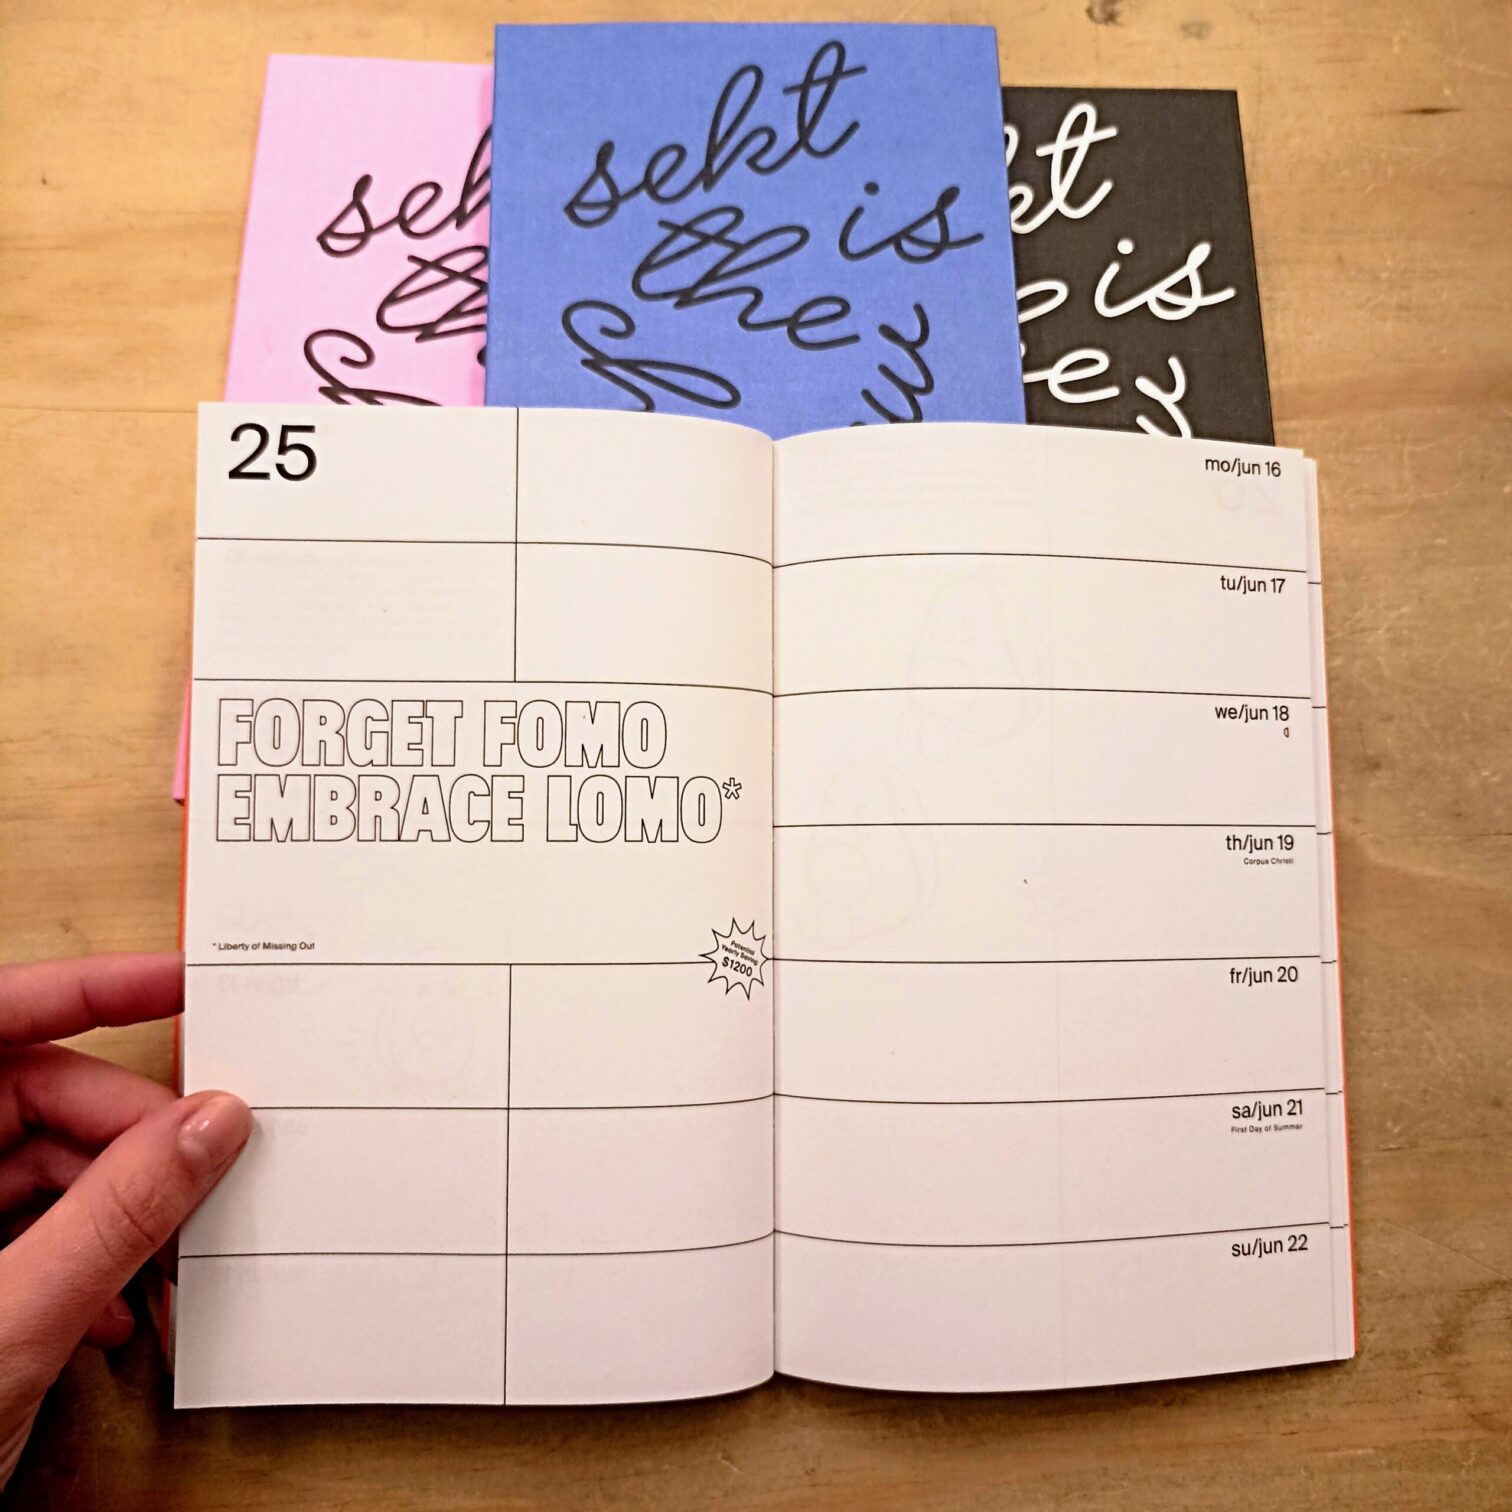 sekt
is
the
sekt
is
25
mo/jun 16
tu/jun 17
FORGET FOMO
EMBRACE LOMO*
we/jun 18
th/jun 19
Corpus Christi
* Liberty of Missing Out
Potential
Yearly Saving
$1200
fr/jun 20
sa/jun 21
First Day of Summer
su/jun 22